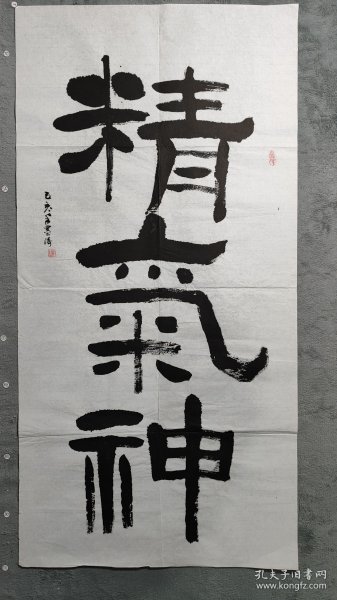 精氣神
孔夫子旧书网
www.kongfz.com